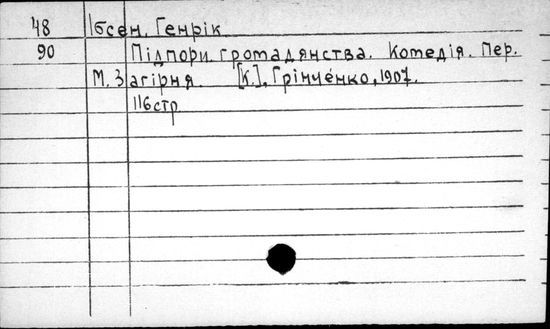 48 Ібсен, Генрік
90 Підпори громадянства. Комедія. Пер.
М. Загірня. [К.], Грінченко, 1907.
116 стр